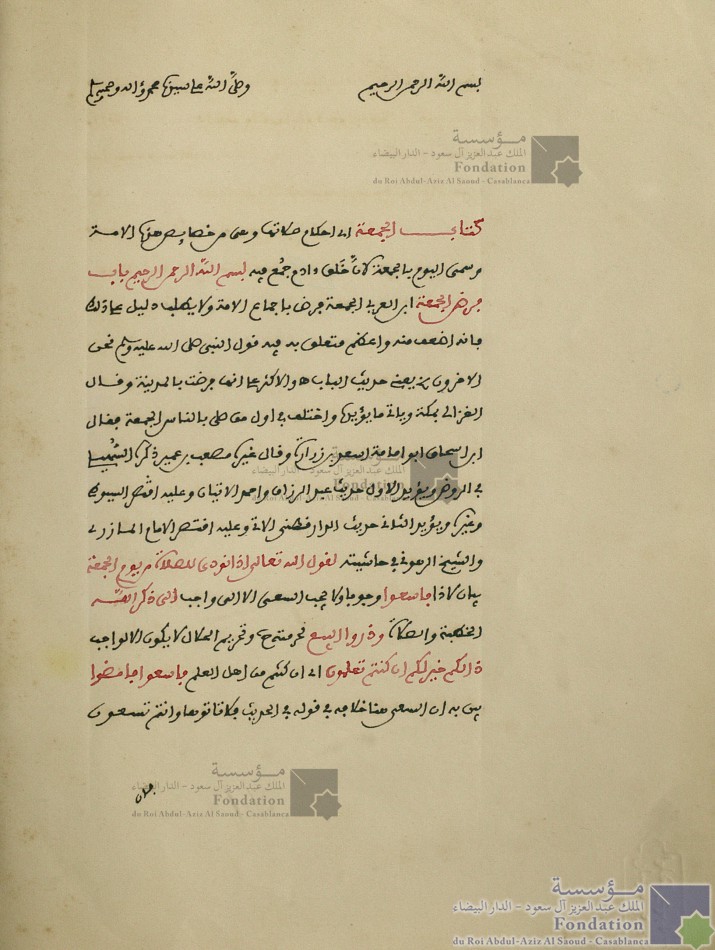 بسم الله الرحمن الرحيم وصلى الله على سيدنا محمد وآله وصحبه وسلم
مؤسسة
الملك عبد العزيز آل سعود - الدار البيضاء
Fondation
du Roi Abdul-Aziz Al Saoud - Casablanca
كتاب الجمعة أي أحكام صلاتها وهي من خصايص هذه الامة
وسمي اليوم بالجمعة لان خلق ءادم جمع فيه بسم الله الرحمن الرحيم باب
فرض الجمعة ابن العربي الجمعة فرض باجماع الامة ولا يطلب دليل على ذلك
فانه اضعف منه واعظم متعلق به فيه قول النبي صلى الله عليه وسلم نحن
الاخرون يعني حديث الباب والاكثر على انها فرضت بالمدينة وقال
الغزالي بمكة وياتي ما يؤيده واختلف في اول من صلى بالناس الجمعة فقال
ابن اسحاق ابو امامة اسعد بن زرارة وقال غيره مصعب بن عمير ذكره السهيلي
في الروض ويؤيد الاول حديث عبد الرزاق واحمد الاتيان وعليه اقتصر السيوطي
وغيره ويؤيد الثاني حديث الدارقطني الاتي وعليه اقتصر الامام المازري
والشيخ الرهوني في حاشيته لقول الله تعالى اذا نودي للصلاة من يوم الجمعة
بيان لاذا فاسعوا وجوبا ولا يجب السعي الا الى واجب الى ذكر الله
الخطبة والصلاة وذروا البيع تحريم الحلال لا يكون الا لواجب
ذالكم خير لكم ان كنتم تعلمون اي ان كنتم من اهل العلم فاسعوا فامضوا
بين به ان السعي هنا خلافه في قوله في الحديث فلا تاتوها وانتم تسعون
مؤسسة
الملك عبد العزيز آل سعود - الدار البيضاء
Fondation
du Roi Abdul-Aziz Al Saoud - Casablanca
مؤسسة
الملك عبد العزيز آل سعود - الدار البيضاء
Fondation
du Roi Abdul-Aziz Al Saoud - Casablanca